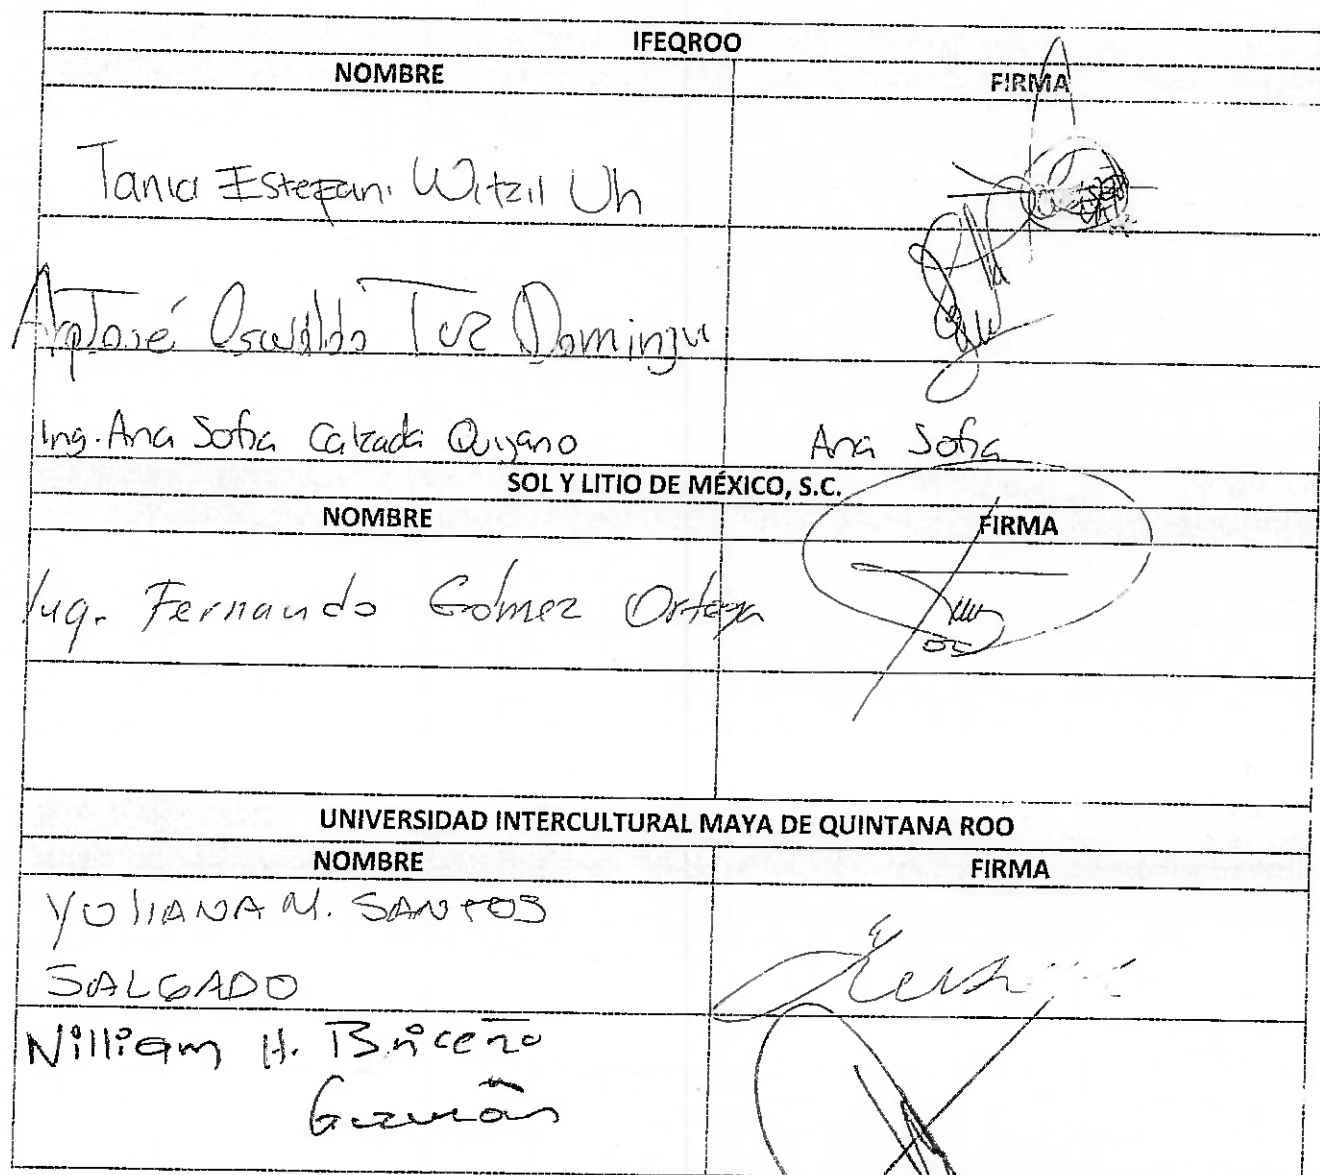 IFEQROO
NOMBRE FIRMA
Tania Estefani Witzil Uh
Arq José Oswaldo Tuz Domingu
Ing. Ana Sofia Calzada Quijano Ana Sofia
SOL Y LITIO DE MÉXICO, S.C.
NOMBRE FIRMA
Ing. Fernando Gómez Ortega
UNIVERSIDAD INTERCULTURAL MAYA DE QUINTANA ROO
NOMBRE FIRMA
YULIANA M. SANTOS
SALGADO
William H. Briceño
Guzmán